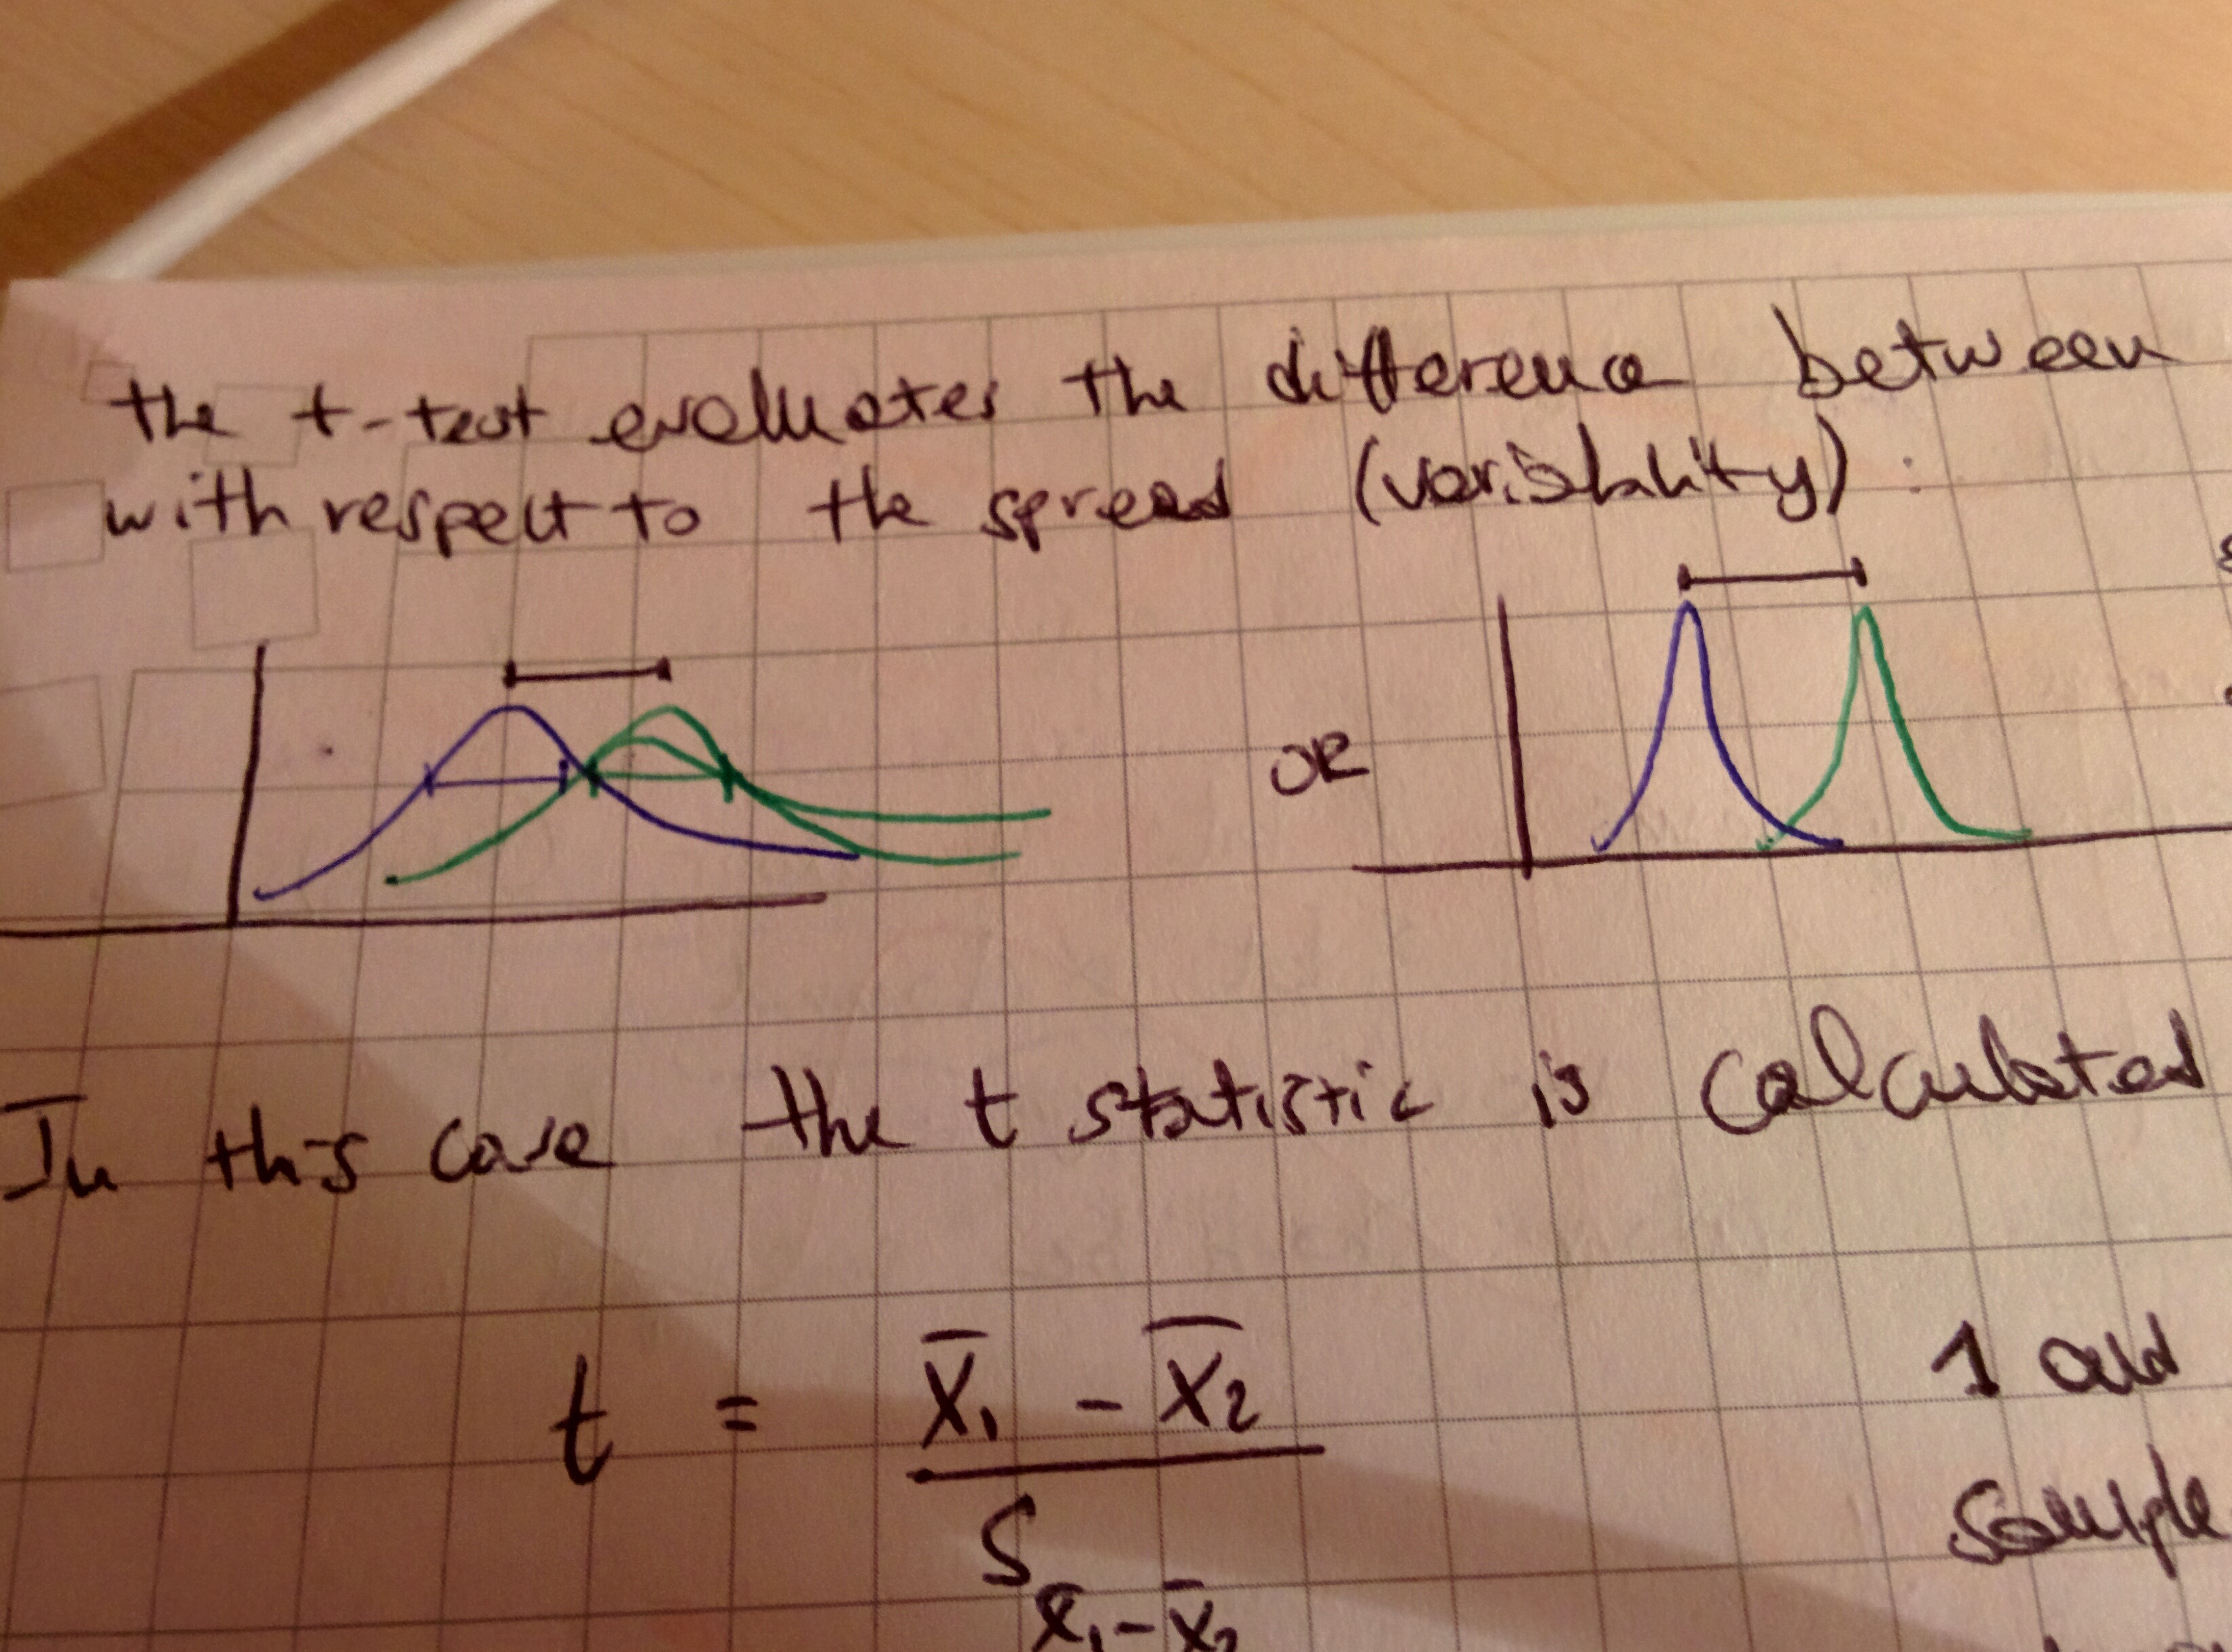 the t-test evaluates the difference between
with respect to the spread (variability) :
OR
In this case the t statistic is calculated
t = X̄₁ - X̄₂
S X̄₁ - X̄₂
1 and
sample